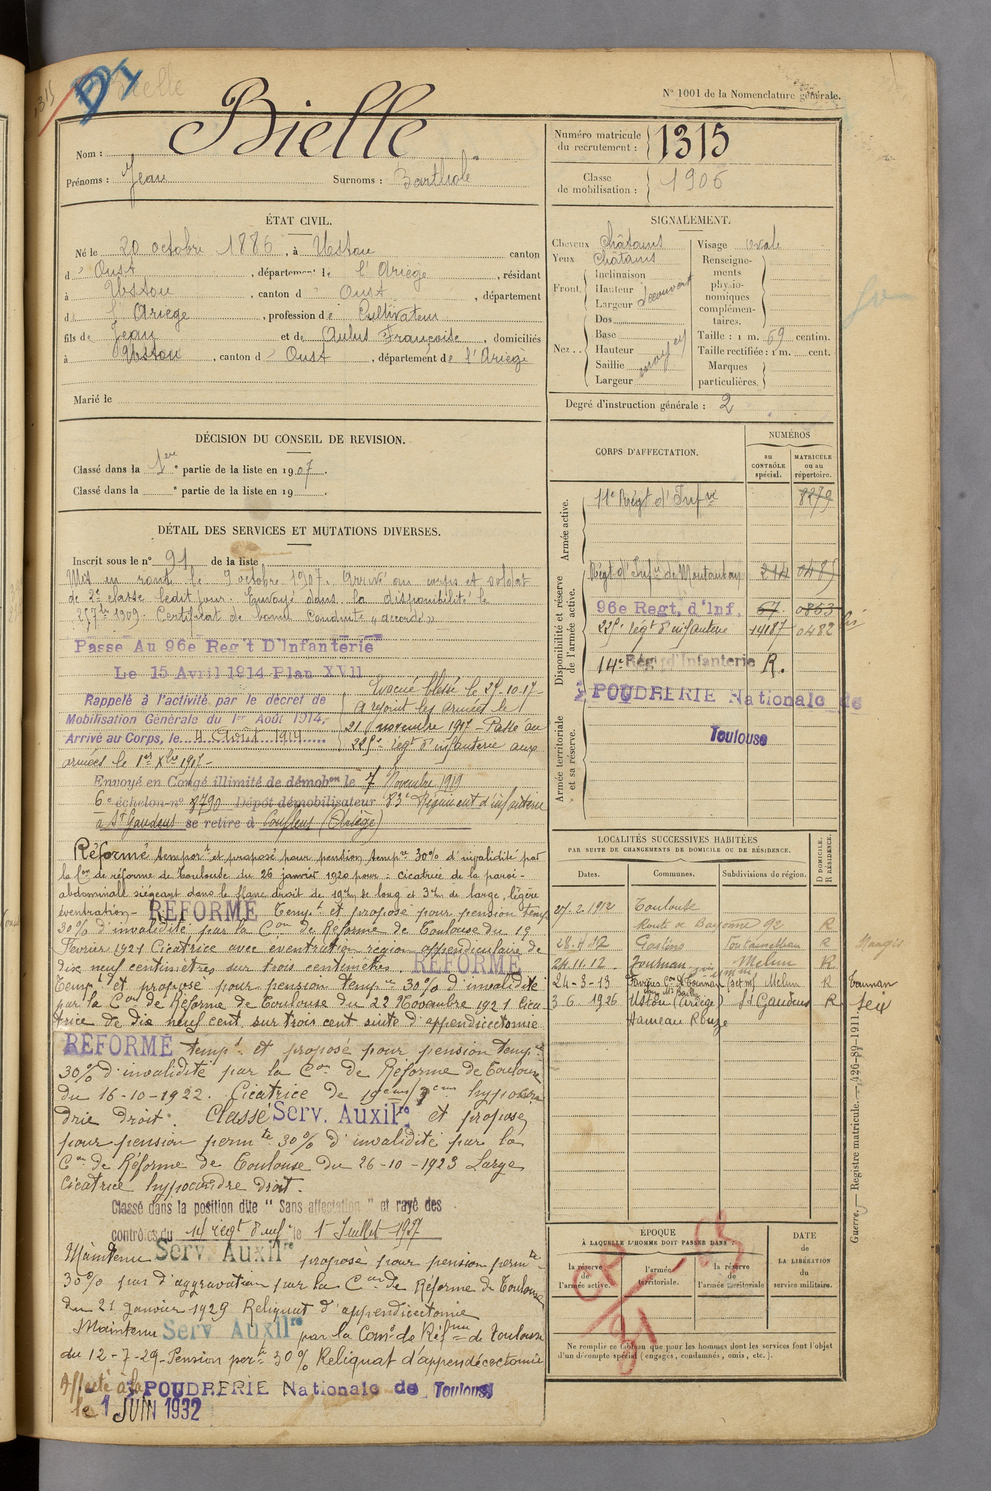 Bielle
N° 1001 de la Nomenclature générale.
Nom : Bielle
Prénoms : Jean Surnoms : Barthole
Numéro matricule du recrutement : 1315
Classe de mobilisation : 1906
ÉTAT CIVIL.
Né le 20 octobre 1886, à Ustou canton
d' Oust, département de l'Ariège, résidant
à Ustou, canton d' Oust, département
de l'Ariège, profession de Cultivateur
fils de Jean et de Aulus Françoise, domiciliés
à Ustou, canton d' Oust, département de l'Ariège
Marié le
SIGNALEMENT.
Cheveux châtains
Yeux châtains
Front. Inclinaison
Hauteur découvert
Largeur
Nez.. Dos
Base
Hauteur moyen
Saillie
Largeur
Visage ovale
Renseignements physionomiques complémentaires.
Taille : 1 m. 69 centim.
Taille rectifiée : 1 m. cent.
Marques particulières.
Degré d'instruction générale : 2
DÉCISION DU CONSEIL DE REVISION.
Classé dans la 1ere partie de la liste en 1907.
Classé dans la e partie de la liste en 19 .
DÉTAIL DES SERVICES ET MUTATIONS DIVERSES.
Inscrit sous le n° 91 de la liste
Mis en route le 9 octobre 1907. Arrivé au corps et soldat
de 2e classe ledit jour. Envoyé dans la disponibilité le
25 7bre 1909. Certificat de bonne conduite "accordé"
Passé Au 96e Reg't D'Infanterie
Le 15 Avril 1914 Plan XVII
Rappelé à l'activité par le décret de
Mobilisation Générale du 1er Août 1914,
Arrivé au Corps, le 4 Août 1914
Evacué blessé le 25-10-17-
a rejoint les armées le
21 novembre 1917 - Passé au
225e régt d'infanterie aux
armées le 1er Xbre 1917-
Envoyé en Congé illimité de démobon le 7 Novembre 1919
6e échelon n° 8790 Dépôt démobilisateur 83e Régiment d'infanterie
à St Gaudens se retire à Couflens (Ariège)
Réformé temport et proposé pour pension tempre 30% d'invalidité par
la Con de réforme de Toulouse du 26 janvier 1920 pour : cicatrice de la paroi
abdominale siégeant dans le flanc droit de 19cm de long et 3cm de large, légère
éventration- REFORMÉ tempt et proposé pour pension temp
30% d'invalidité par la Con de Réforme de Toulouse du 19
Février 1921 Cicatrice avec éventration région appendiculaire de
dix neuf centimètres sur trois centimètres. REFORMÉ
tempt et proposé pour pension tempre 30% d'invalidité
par la Con de Réforme de Toulouse du 22 Novembre 1921 Cica
trice de dix neuf cent. sur trois cent suite d'appendicectomie
REFORMÉ tempt et proposé pour pension tempre
30% d'invalidité par la Con de Réforme de Toulouse
du 16-10-1922. Cicatrice de 19cm/3cm hypocon
drie droit. Classé Serv. Auxilre et proposé
pour pension permte 30% d'invalidité par la
Con de Réforme de Toulouse du 26-10-1923 Large
cicatrice hypocondre droit.
Classé dans la position dite "Sans affectation" et rayé des
contrôles du 14 régt d'inf le 1er Juillet 1927
Maintenu Serv. Auxilre proposé pour pension permte
30% pas d'aggravation par la Con de Réforme de Toulouse
du 21 Janvier 1929 Reliquat d'appendicectomie
Maintenu Serv Auxilre par la Comon de Réfme de Toulouse
du 12-7-29-Pension perte 30% Reliquat d'appendicectomie
Affecté à la POUDRERIE Nationale de Toulouse
le 1 JUIN 1932
CORPS D'AFFECTATION.
NUMÉROS
au CONTRÔLE spécial.
MATRICULE ou au répertoire.
Armée active.
11e Régt d'Infrie 8279
Disponibilité et réserve de l'armée active.
Régt d'Infrie de Montauban 214 0485
96e Regt. d'Inf. 67 0863
225e régt d'infanterie 14187 0482 bis
14e Rég. d'Infanterie R.
POUDRERIE Nationale de
Toulouse
Armée territoriale et sa réserve.
LOCALITÉS SUCCESSIVES HABITÉES
PAR SUITE DE CHANGEMENTS DE DOMICILE OU DE RÉSIDENCE.
Dates. Communes. Subdivisions de région. D DOMICILE. R RÉSIDENCE.
27.2.1912 Toulouse
Route de Bayonne 92 R
Gastins Fontainebleau R Nangis
24.11.12 Tournan Melun R
24-3-13 Melun R Tournan
3.6.1926 Ustou (Ariège) St Gaudens R Seix
Hameau Rouze
ÉPOQUE
À LAQUELLE L'HOMME DOIT PASSER DANS :
la réserve de l'armée active.
l'armée territoriale.
la réserve de l'armée territoriale
DATE de LA LIBÉRATION du service militaire.
Ne remplir ce tableau que pour les hommes dont les services font l'objet
d'un décompte spécial (engagés, condamnés, omis, etc.).
Guerre. — Registre matricule. — 426-89-1911.